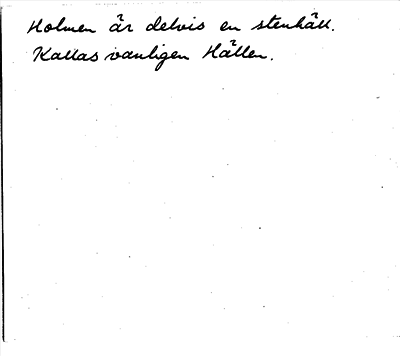 Holmen är delvis en stenhäll.
Kallas vanligen Hällen.